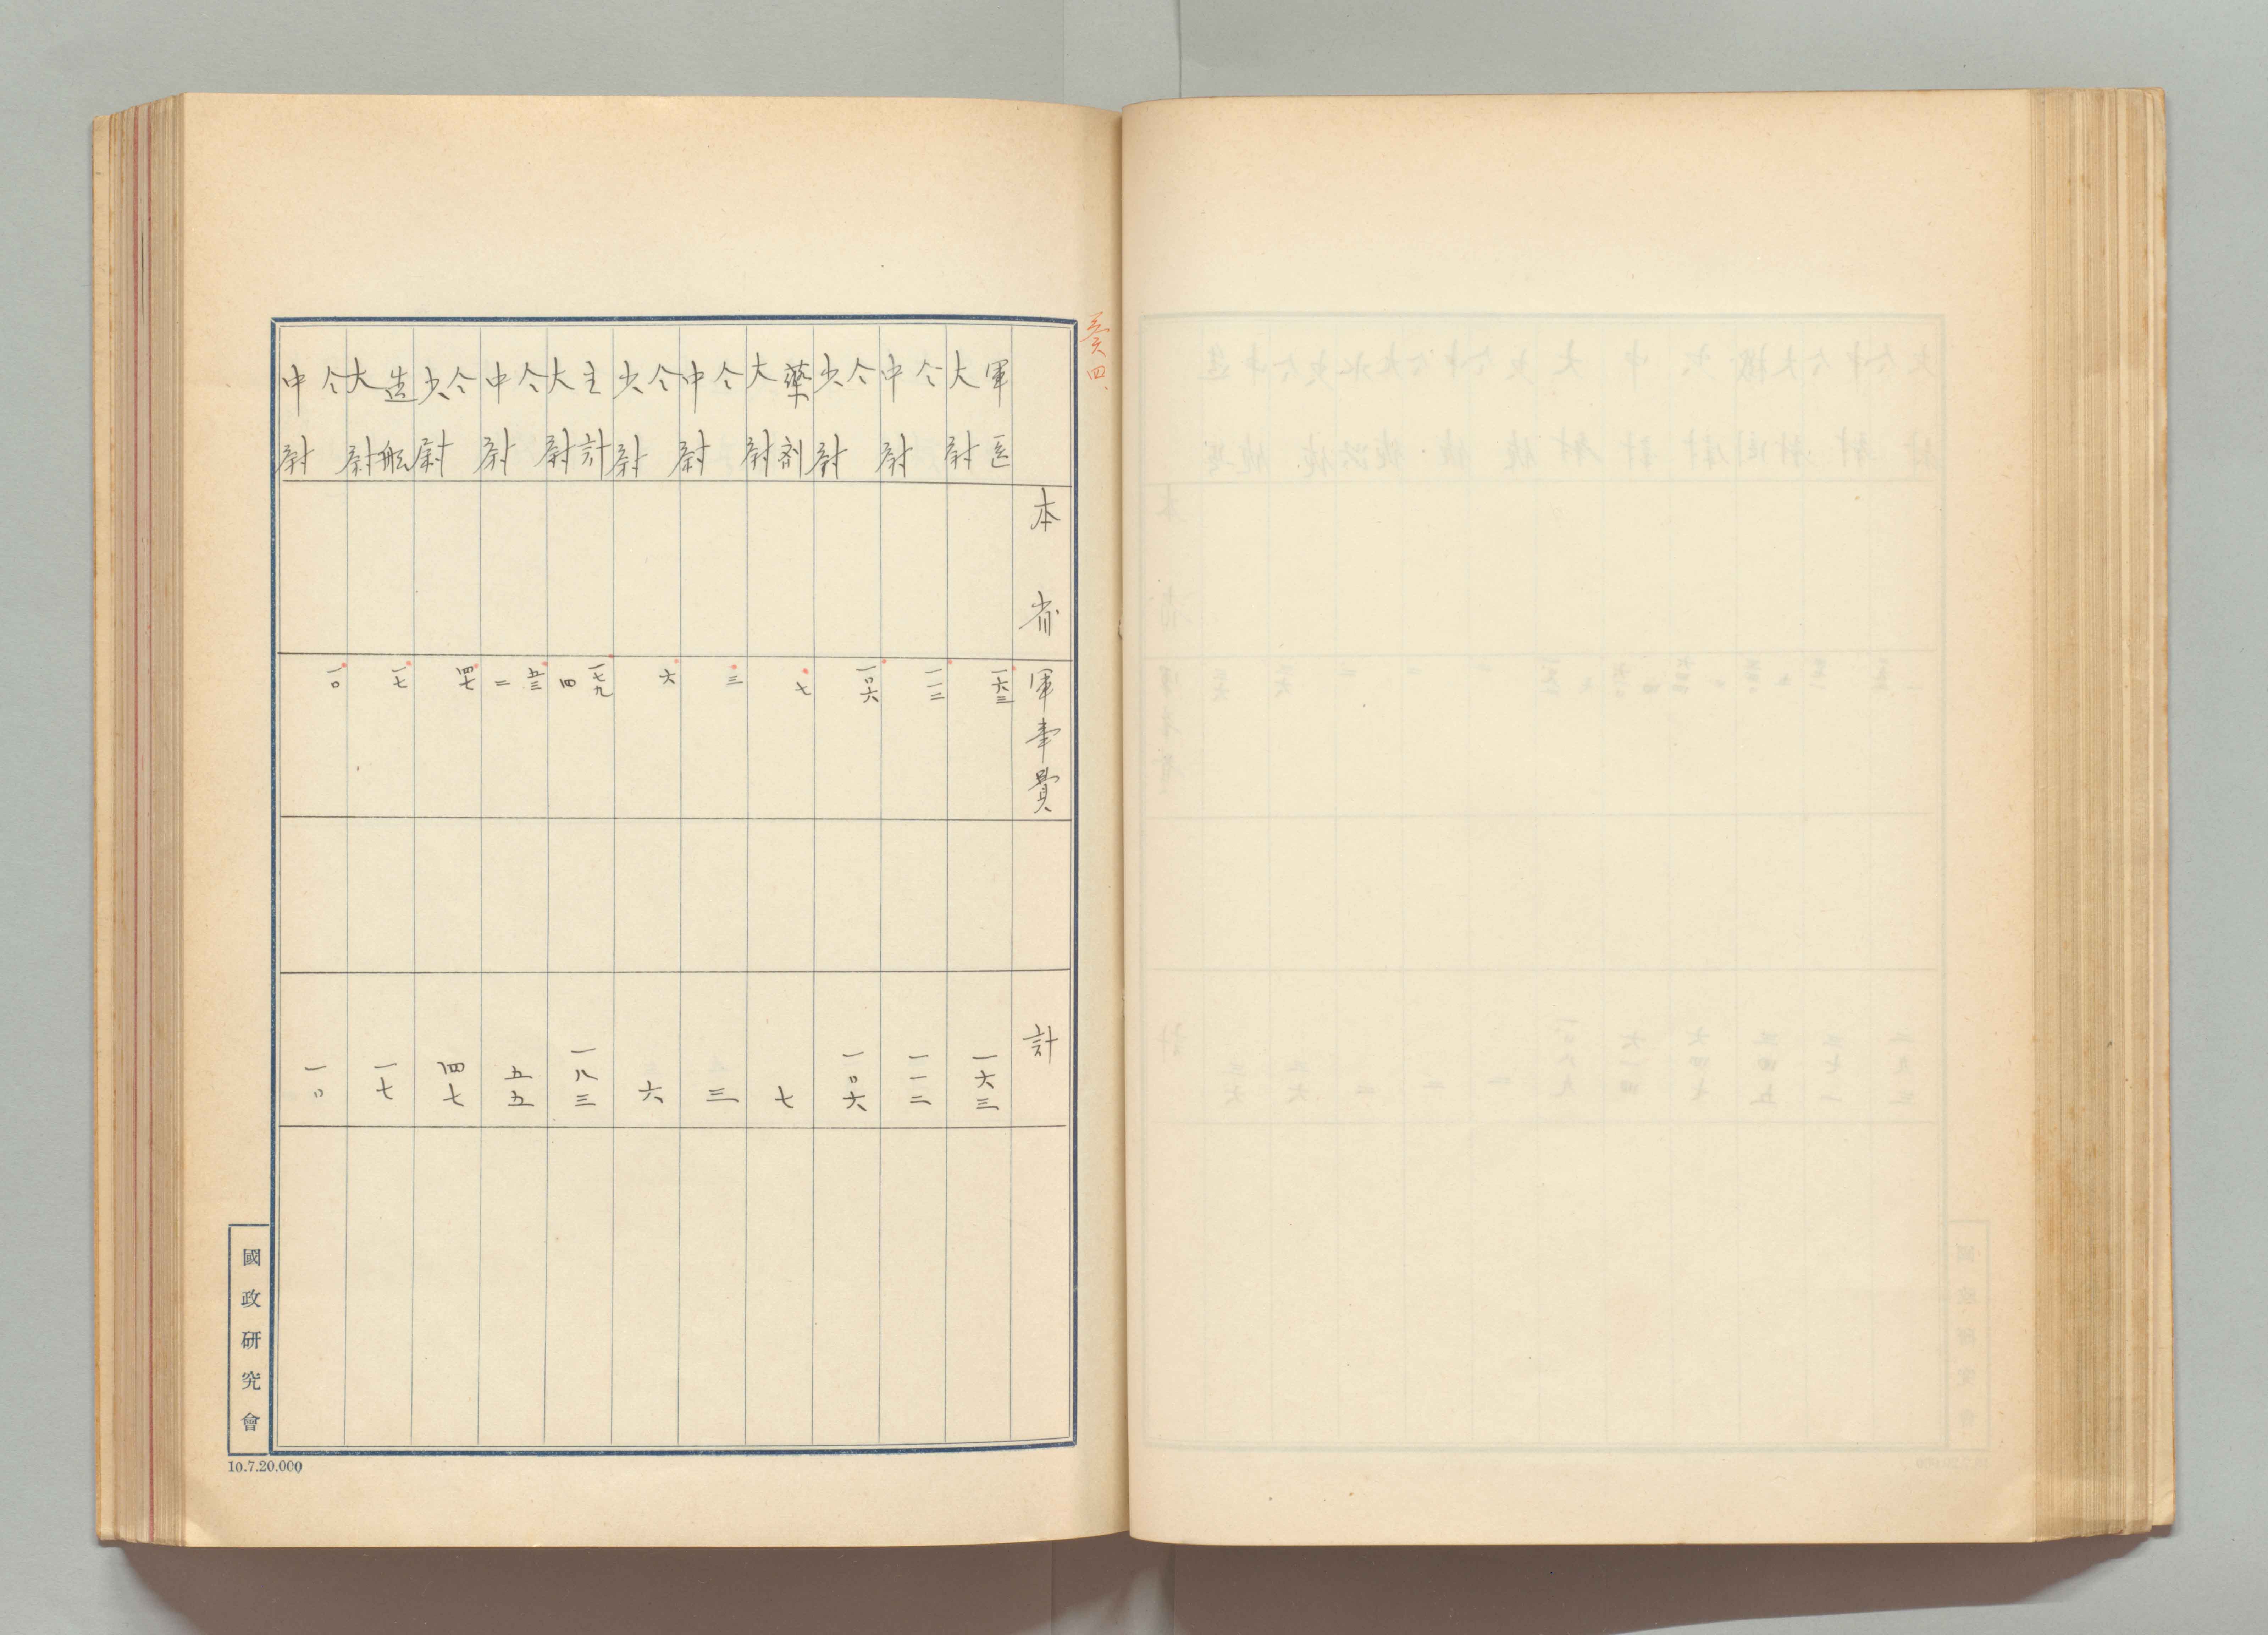 本省 軍事費 計
軍医大尉 一六三 一六三
仝中尉 一一二 一一二
仝少尉 一〇六 一〇六
藥剤大尉 七 七
仝中尉 三 三
仝少尉 六 六
主計大尉 一七九 四 一八三
仝中尉 五三 二 五五
仝少尉 四七 四七
造船大尉 一七 一七
仝中尉 一〇 一〇
國政研究會
10.7.20.000